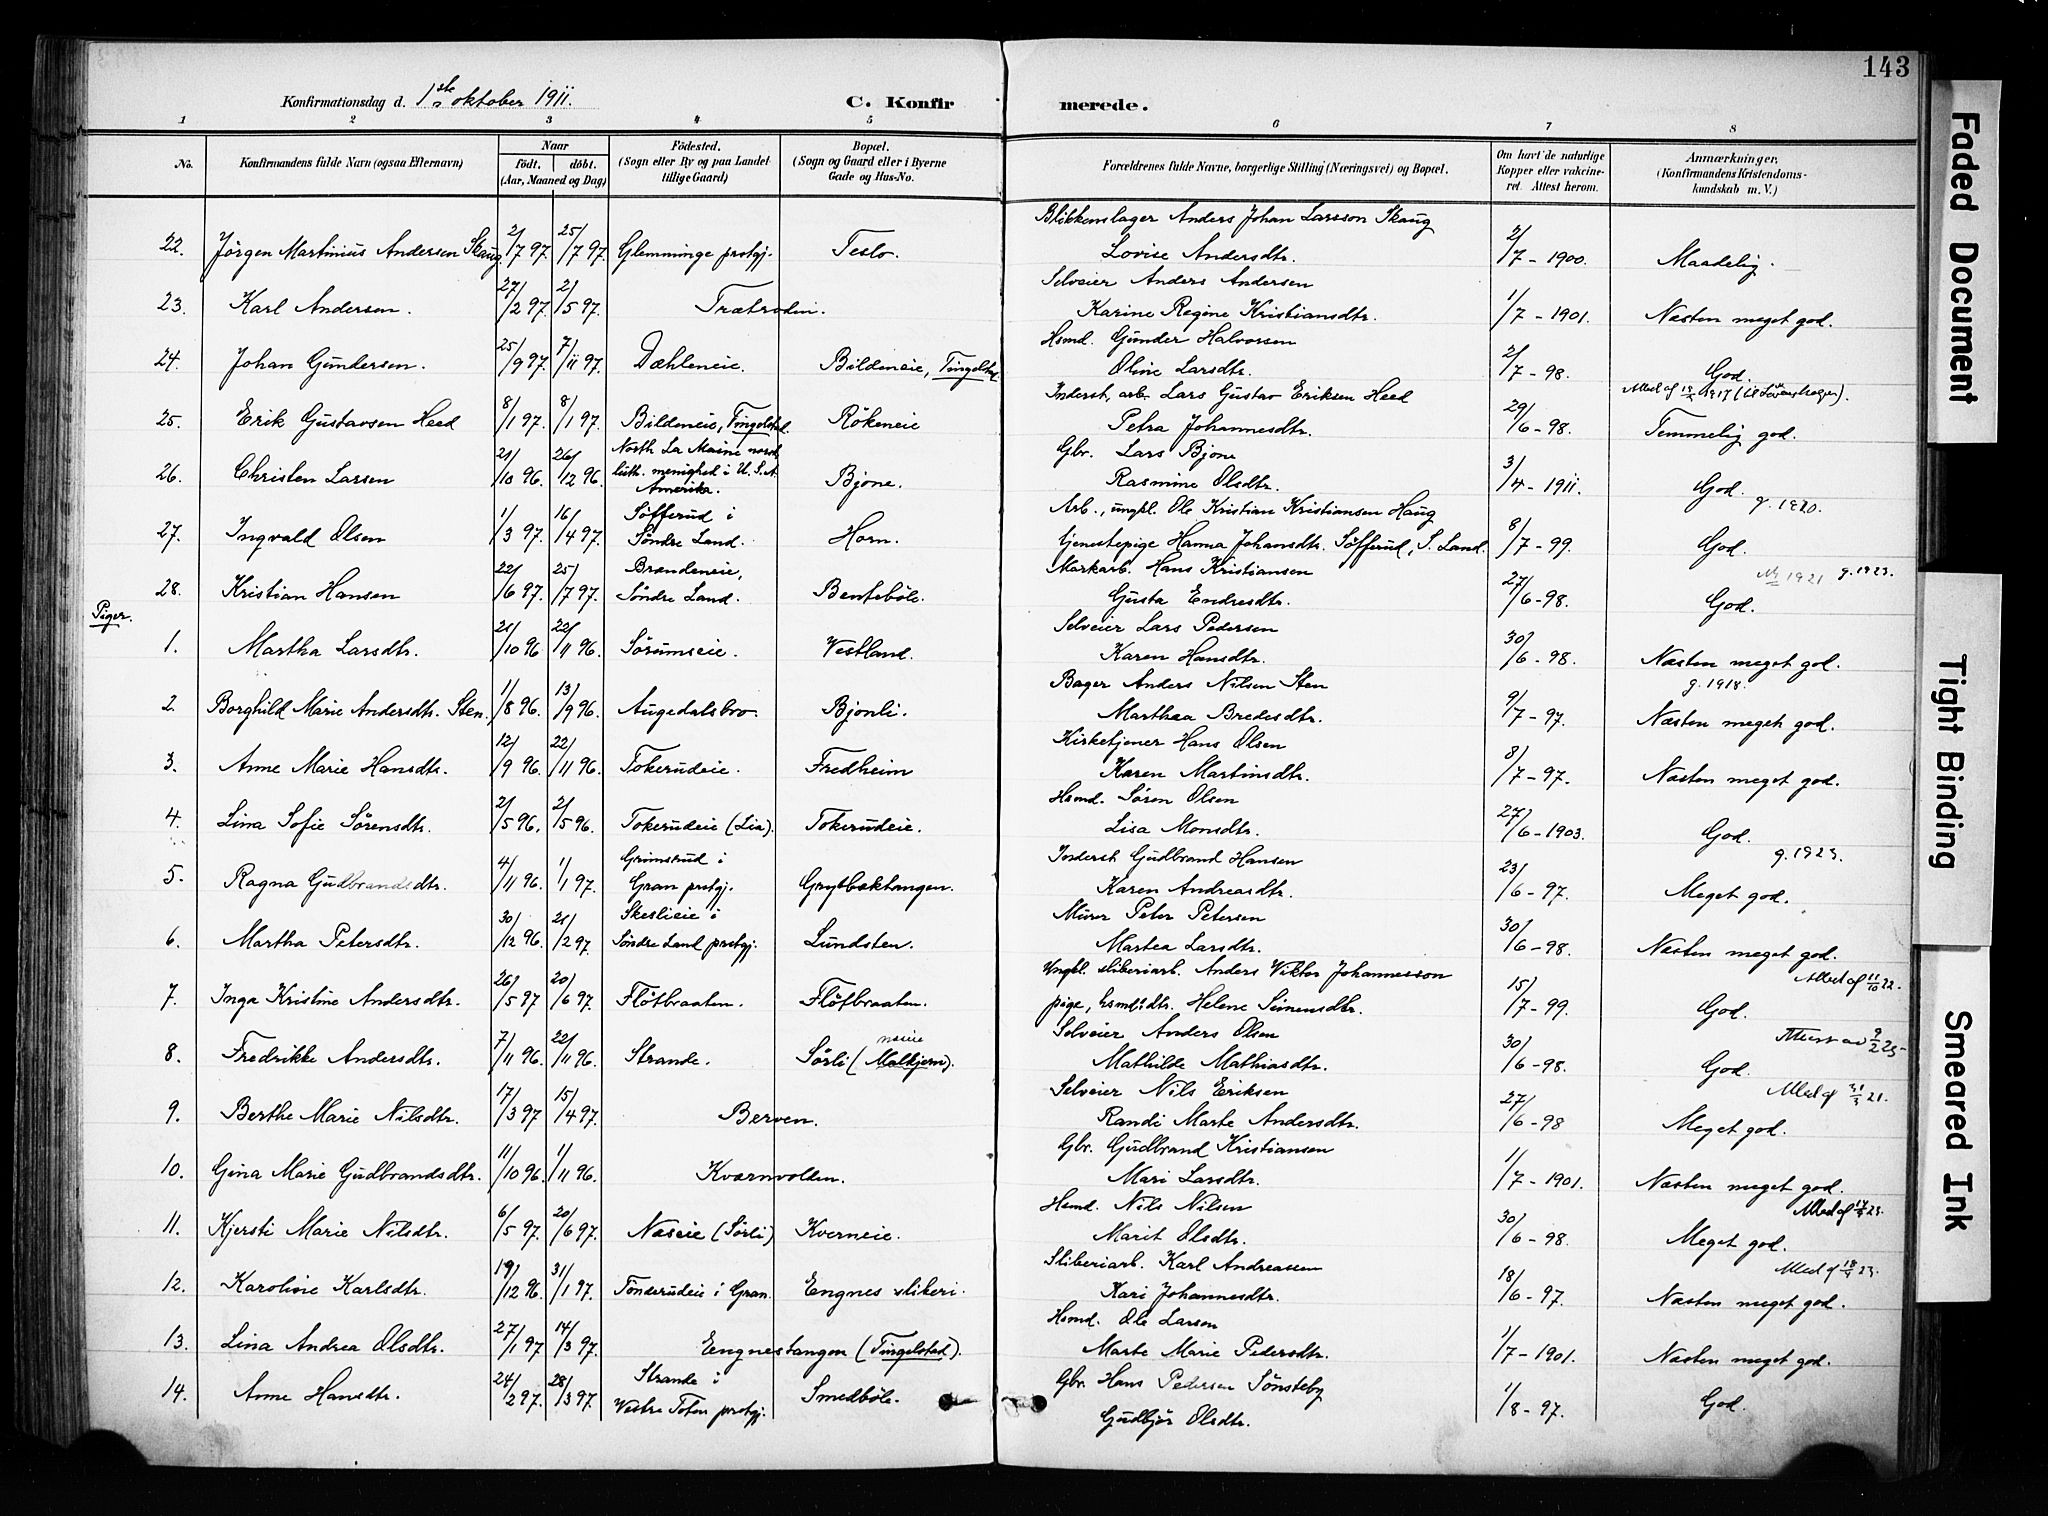 143
Konfirmationsdag d. 1ste oktober 1911. C. Konfirmerede.
1 2 3 4 5 6 7 8
No. Konfirmandens fulde Navn (ogsaa Efternavn) Naar født, døbt. (Aar, Maaned og Dag) Fødested. (Sogn eller By og paa Landet tillige Gaard) Bopæl. (Sogn og Gaard eller i Byerne Gade og Hus-No. Forældrenes fulde Navne, borgerlige Stilling (Næringsvei) og Bopæl. Om havt de naturlige Kopper eller vakcineret. Attest herom. Anmærkninger. (Konfirmandens Kristendomskundskab m. V.)
Blikkenslager Anders Johan Larsson Skaug
22. Jörgen Martinius Andersen Skaug. 2/7 97. 25/7 97. Glemminge prstgj. Teslo. Lovise Andersdtr. 2/7 - 1900. Maadelig.
Selveier Anders Andersen
23. Karl Andersen. 27/2 97. 2/5 97. Trætroden. Karine Regine Kristiansdtr. 1/7 - 1901. Næsten meget god.
Hsmd. Gunder Halvorsen
24. Johan Gundersen. 25/9 97. 7/11 97. Dæhleneie. Bildeneie, Tingelstad. Oline Larsdtr. 2/7 - 98. God.
Inderst, arb. Lars Gustav Eriksen Heed
25. Erik Gustavsen Heed 8/1 97. 8/1 97. Bildeneie, Tingelstad. Rökeneie Petra Johannesdtr. 29/6 - 98. Temmelig god.
Gbr. Lars Bjone
26. Christen Larsen 21/10 96. 26/12 96. North La Maine norsk luth. menighed i U. S. A. Amerika. Bjone. Rasmine Olsdtr. 3/4 - 1911. God. g. 1920.
Arb., ungkl. Ole Kristian Kristiansen Haug
27. Ingvald Olsen 1/3 97. 16/4 97. Söfferud i Söndre Land. Horn. tjenestepige Hanna Johansdtr. Söfferud, S. Land. 8/7 - 99. God.
Markarb. Hans Kristiansen 1921 g. 1923.
28. Kristian Hansen 22/6 97. 25/7 97. Brandeneie, Söndre Land. Benteböle. Gusta Endresdtr. 27/6 - 98. God.
Piger.
Selveier Lars Pedersen
1. Martha Larsdtr. 21/10 96 22/11 96. Sörumseie. Vestland. Karen Hansdtr. 30/6 - 98. Næsten meget god.
Bager Anders Nilsen Sten g. 1918.
2. Borghild Marie Andersdtr. Sten. 1/8 96. 13/9 96. Augedalsbro. Bjonli. Marthea Bredesdtr. 9/7 - 97. Næsten meget god.
Kirketjener Hans Olsen
3. Anne Marie Hansdtr. 12/9 96. 22/11 96. Tokerudeie. Fredheim Karen Martinsdtr. 8/7 - 97. Næsten meget god.
Hsmd. Sören Olsen
4. Lina Sofie Sörensdtr. 2/5 96. 2/5 96. Tokerudeie (Lia). Tokerudeie. Lisa Monsdtr. 27/6 - 1903. God.
Inderst Gudbrand Hansen g. 1923.
5. Ragna Gudbrandsdtr. 4/11 96. 1/1 97. Grimsrud i Gran prstgj. Grytbaktangen. Karen Andreasdtr. 23/6 - 97. Meget god.
Murer Peter Petersen
6. Martha Petersdtr. 30/12 96. 21/2 97. Skeslieie i Söndre Land prstgj. Lundsten. Martea Larsdtr. 30/6 - 98. Næsten meget god.
Ungkl. sliberiarb. Anders Viktor Johannesson Attest af 11/10 22.
7. Inga Kristine Andersdtr. 26/5 97 20/6 97. Flötbraaten. Flötbraaten. pige, hsmd.dtr. Helene Simensdtr. 15/7 - 99. God.
Selveier Anders Olsen
8. Fredrikke Andersdtr. 7/11 96. 22/11 96. Strande. Sörli (Malkjern). Mathilde Mathiasdtr. 30/6 - 98. God.
Selveier Nils Eriksen
9. Berthe Marie Nilsdtr. 17/3 97 15/4 97. Berven. Randi Marte Andersdtr. 27/6 - 98 Meget god.
Gbr. Gudbrand Kristiansen
10. Gina Marie Gudbrandsdtr. 11/10 96. 1/11 96. Kværnvolden. Mari Larsdtr. 1/7 - 1901. Næsten meget god.
Hsmd. Nils Nilsen
11. Kjersti Marie Nilsdtr. 6/5 97. 20/6 97. Næseie (Sörli) Kverneie. Marit Olsdtr. 30/6 - 98. Meget god.
Sliberiarb. Karl Andreassen
12. Karoline Karlsdtr. 19/12 96. 31/1 97. Tönderudeie i Gran. Engnes sliberi. Kari Johannesdtr. 18/6 - 97. Næsten meget god.
Hsmd. Ole Larsen
13. Lina Andrea Olsdtr. 27/1 97 14/3 97. Engnestangen (Tingelstad). Marte Marie Pedersdtr. 1/7 - 1901. Næsten meget god.
Gbr. Hans Pedersen Sönsteby
14. Anne Hansdtr. 24/2 97. 28/3 97. Strande i Vestre Toten prstgj. Smedböle. Gudbjör Olsdtr. 1/8 - 97. God.
Faded Document
Tight Binding
Smeared Ink